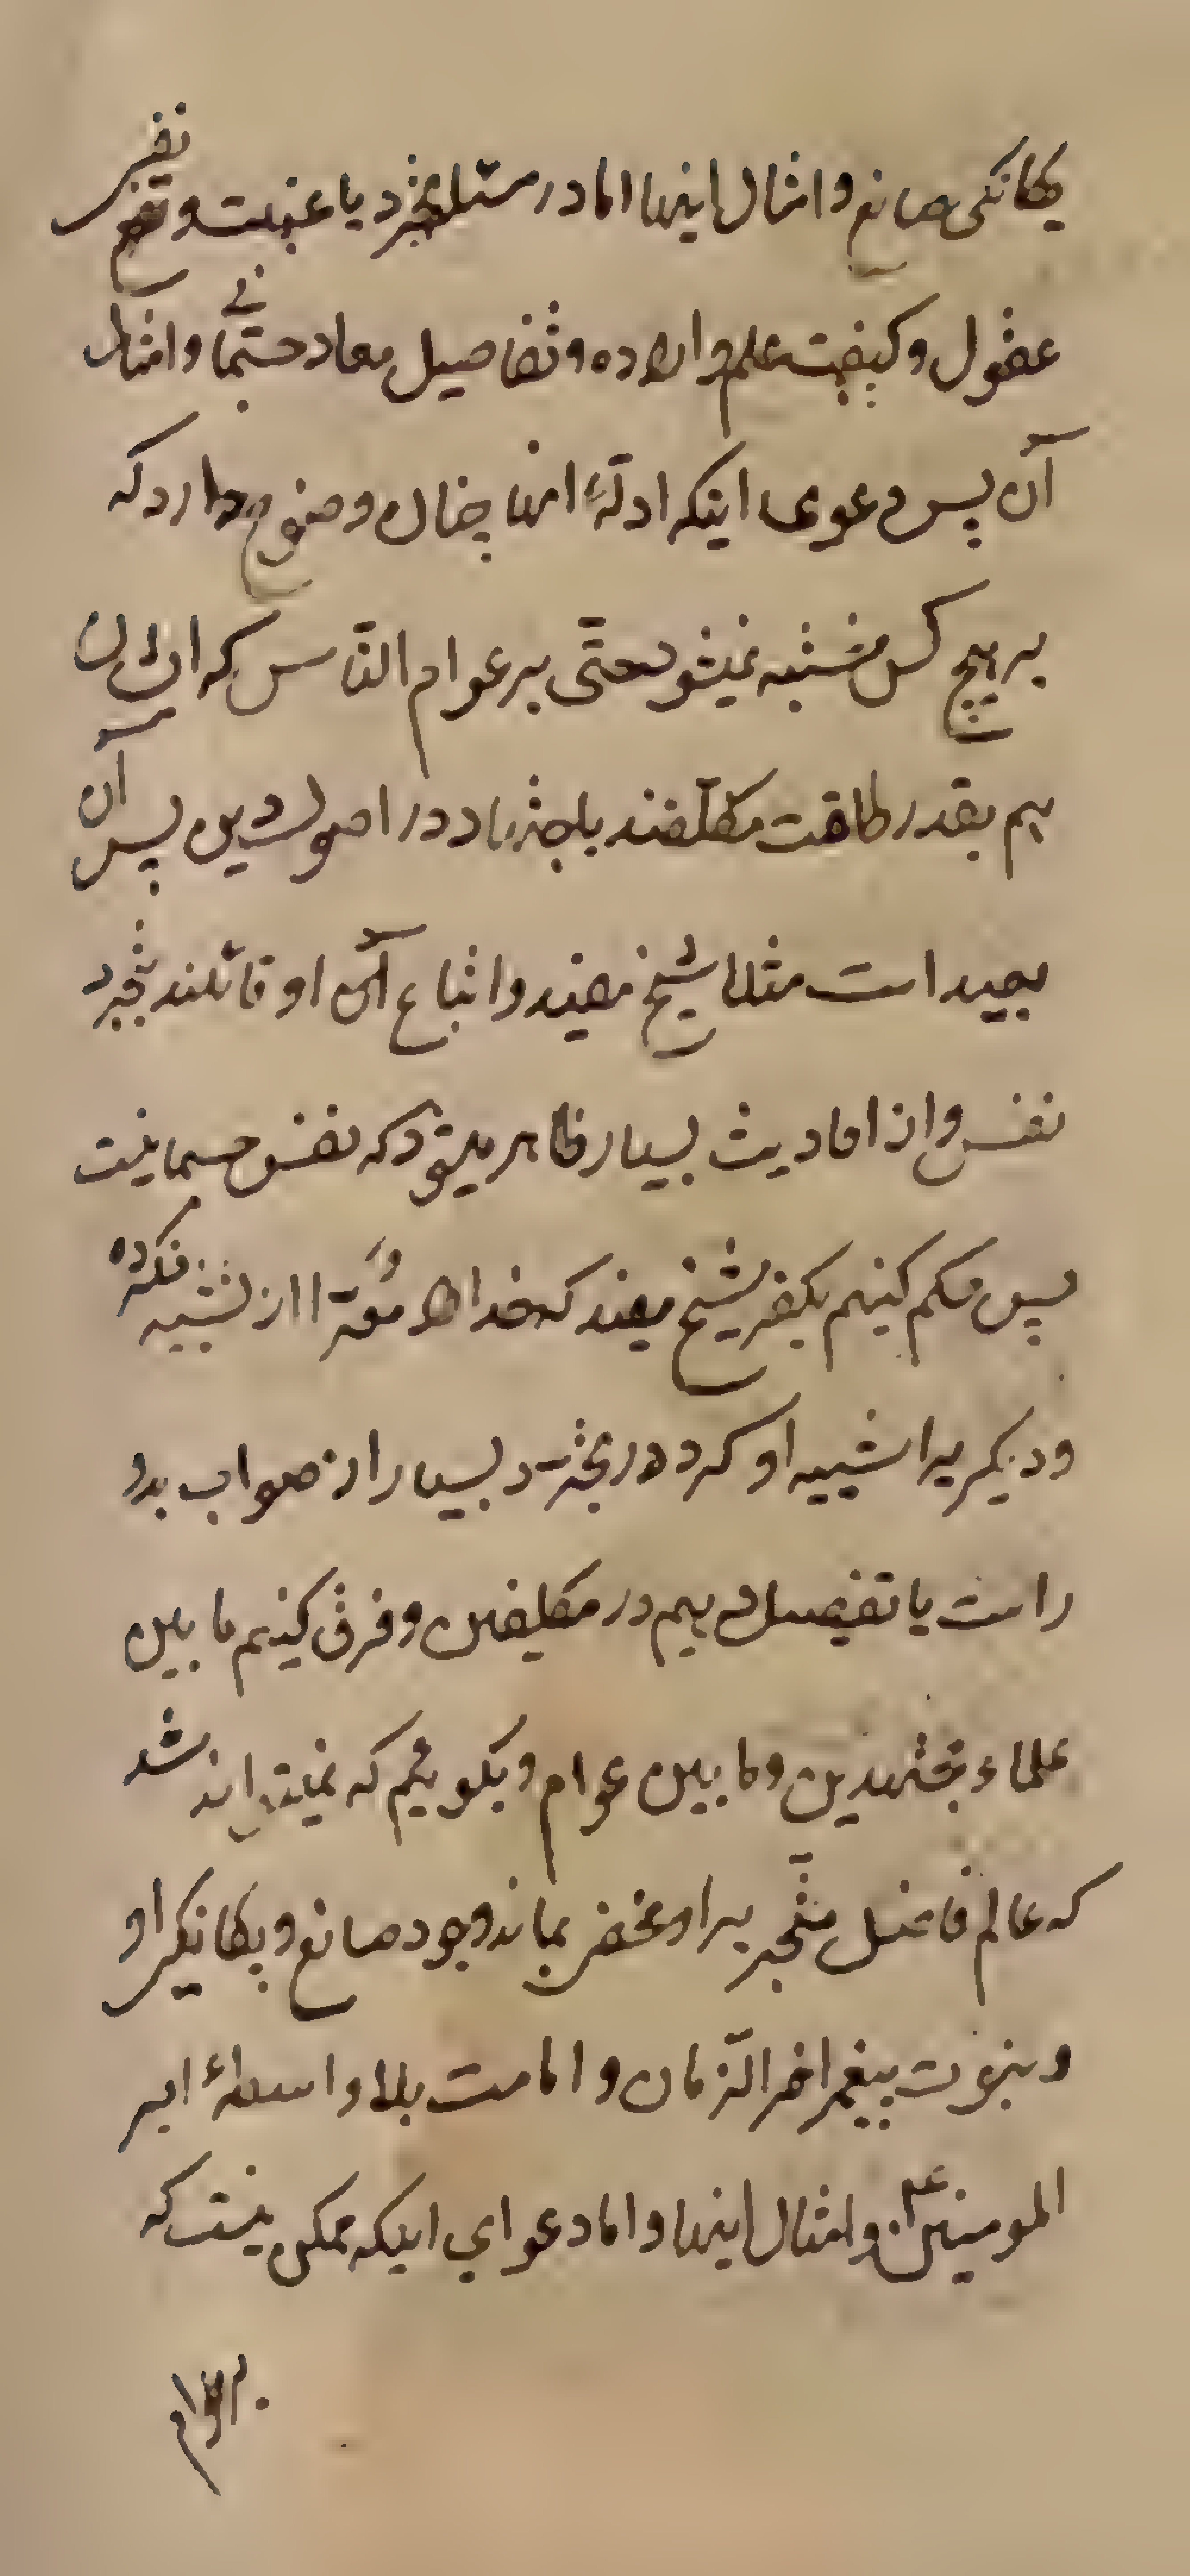 یکانکی صانع و امثال اینها اما در مسئله تجرد یا عینیت و نفی نفس
عقول و کیفیت علم و اراده و تفاصیل معاد جسمانی و امثال
آن پس دعوی اینکه ادلّهٔ انها چنان وضوح دارد که
بر هیچ کس مشتبه نمیشود حتّی بر عوام النّاس که ایشان
هم بقدر طاقت مکلّفند باجتهاد در اصول دین پس آن
بعید است مثلا شیخ مفید و اتباع او قائلند بتجرد
نفس و از احادیث بسیار ظاهر میشود که نفس جسمانیست
پس حکم کنیم بکفر شیخ مفید که خدا را منزّه از تشبیه نکرده
و دیگریرا شبیه او کرد در تجرّد بسیار از صواب بدو
راست یا تفصیل دهیم در مکلفین و فرق کنیم ما بین
علماء مجتهدین و ما بین عوام و بکوئیم که نمیتواند شد
که عالم فاضل متبحّر بر او مخفی بماند وجود صانع و یکانکی او
و نبوت پیغمبر اخر الزّمان و امامت بلا واسطهٔ امیر
المومنین ع و امثال اینها و اما دعوای اینکه ممکن نیست که
بر عوام